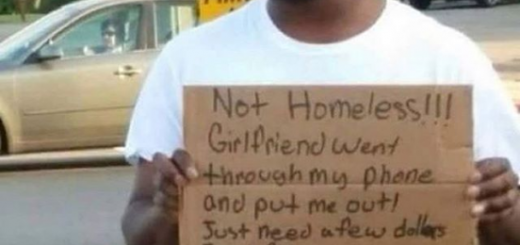 Not Homeless!!!
Girlfriend went
through my phone
and put me out!
Just need a few dollars